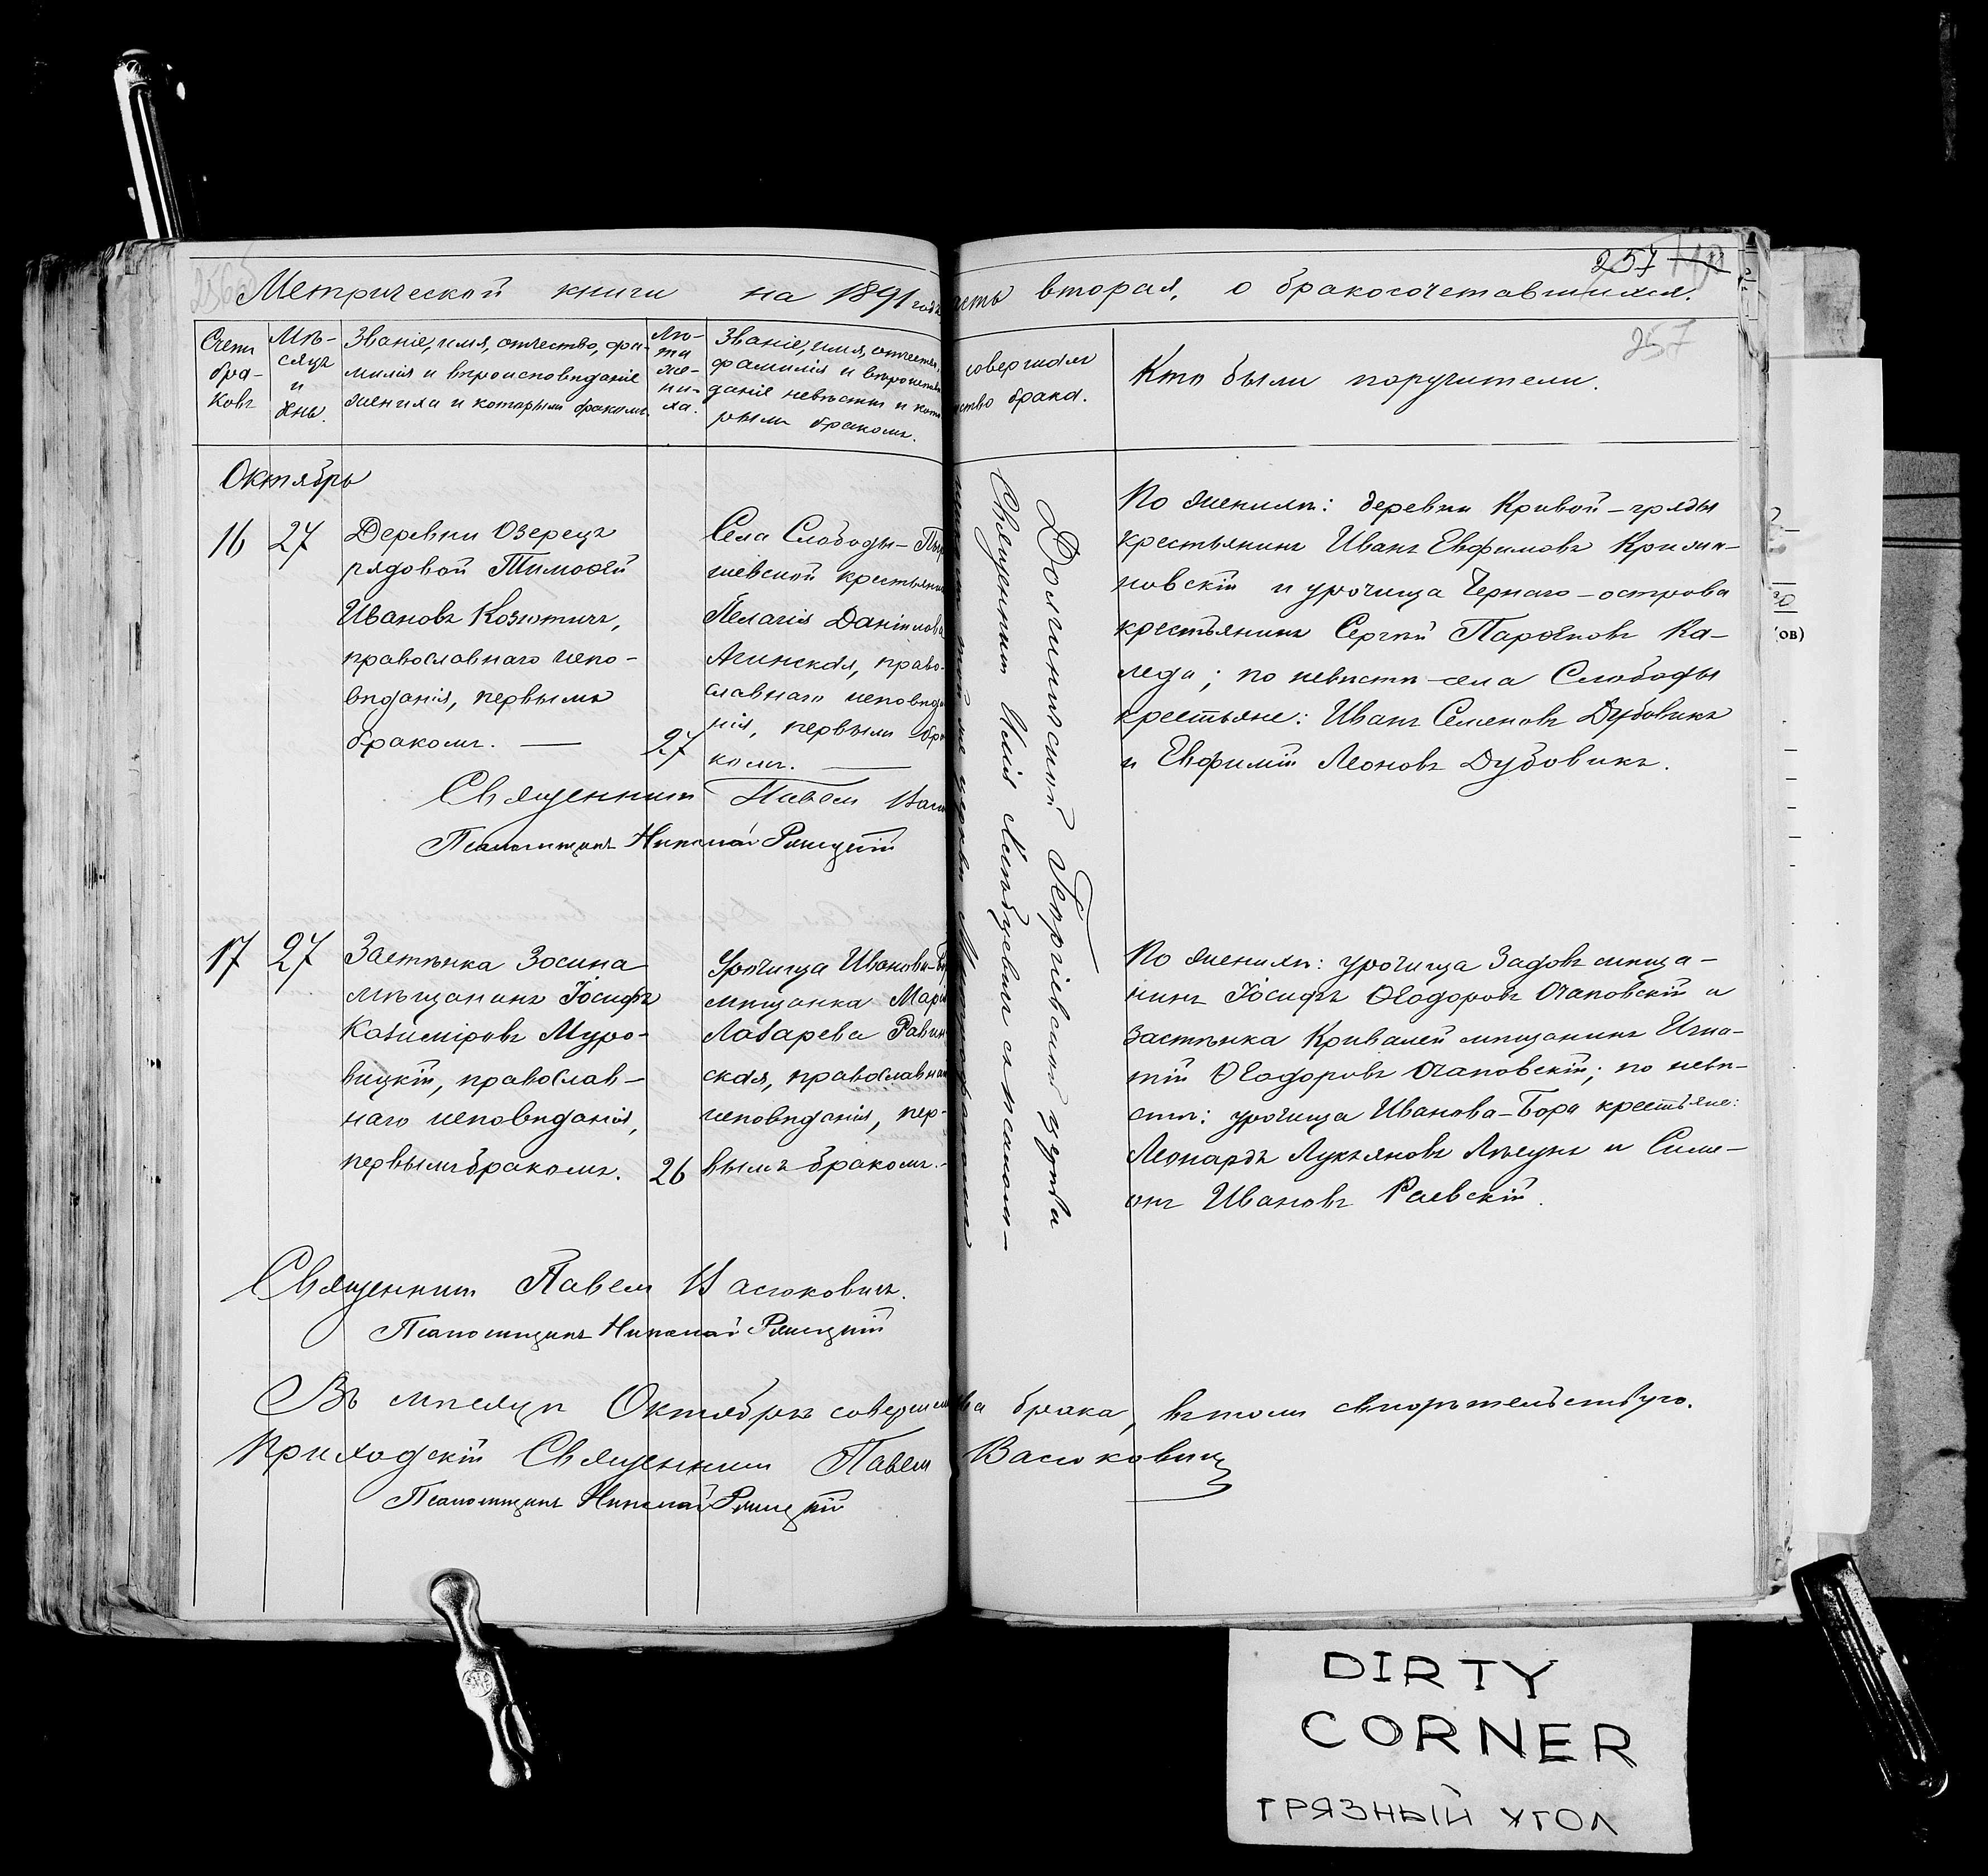 257
Метрической книги на 1891 года
часть вторая, о бракосочетавшихся.
257
Счетъ бра-ковъ
Мѣ-сяцъ и день.
Званіе, имя, отчество, фа-
милія и вѣроисповѣданіе
жениха и которымъ бракомъ.
Лѣ-та же-ни-ха.
Званіе, имя, отчество,
фамилія и вѣроисповѣ
даніе невѣсты и кото
рымъ бракомъ.
совершалъ
ство брака.
Кто были поручители.
Октябрь
16 27
Деревни Озерецъ
рядовой Тимофей
Ивановъ Козютичъ,
православнаго испо-
вѣданія, первымъ
бракомъ. —
27
Села Слободы-
шевской крестьянка
Пелагія Даніилова
Агинская, право-
славнаго исповѣда
нія, первымъ бра
комъ. —
Священникъ Павелъ
Псаломщикъ Николай
По женихѣ: деревни Кривой-гряды
крестьянинъ Иванъ Евфимовъ
новскій и урочища Чернаго-острова
крестьянинъ Сергѣй Ка-
леда; по невѣстѣ села Слободы
крестьяне: Иванъ Семеновъ Дубовикъ
и Евфимій Леоновъ Дубовикъ.
17 27
Застѣнка Зосина
мѣщанинъ Іосифъ
Казиміровъ Муро-
вицкій, православ-
наго исповѣданія,
первымъ бракомъ.
26
Урочища Иванова-
мѣщанка
Лазарева
ская, православнаго
исповѣданія, пер-
вымъ бракомъ.-
По женихѣ: урочища Задовъ мѣща-
нинъ Іосифъ Ѳеодоровъ Очаповскій и
застѣнка Кривалей мѣщанинъ Игна-
тій Ѳеодоровъ Очаповскій; по невѣ-
стѣ: урочища Иванова-Бора крестьяне:
Леонардъ Лукьяновъ и Симе-
онъ Ивановъ Раевскій.
Долгиничской Георгіевской церкви
Священникъ Илія съ псаломщи-
Священникъ Павелъ Васюковичъ.
Псаломщикъ Николай
Въ мѣсяцѣ Октябрѣ совершено два брака, въ томъ свидѣтельствую.
Приходскій Священникъ Павелъ Васюковичъ
Псаломщикъ Николай
(ов)
DIRTY
CORNER
ГРЯЗНЫЙ УГОЛ